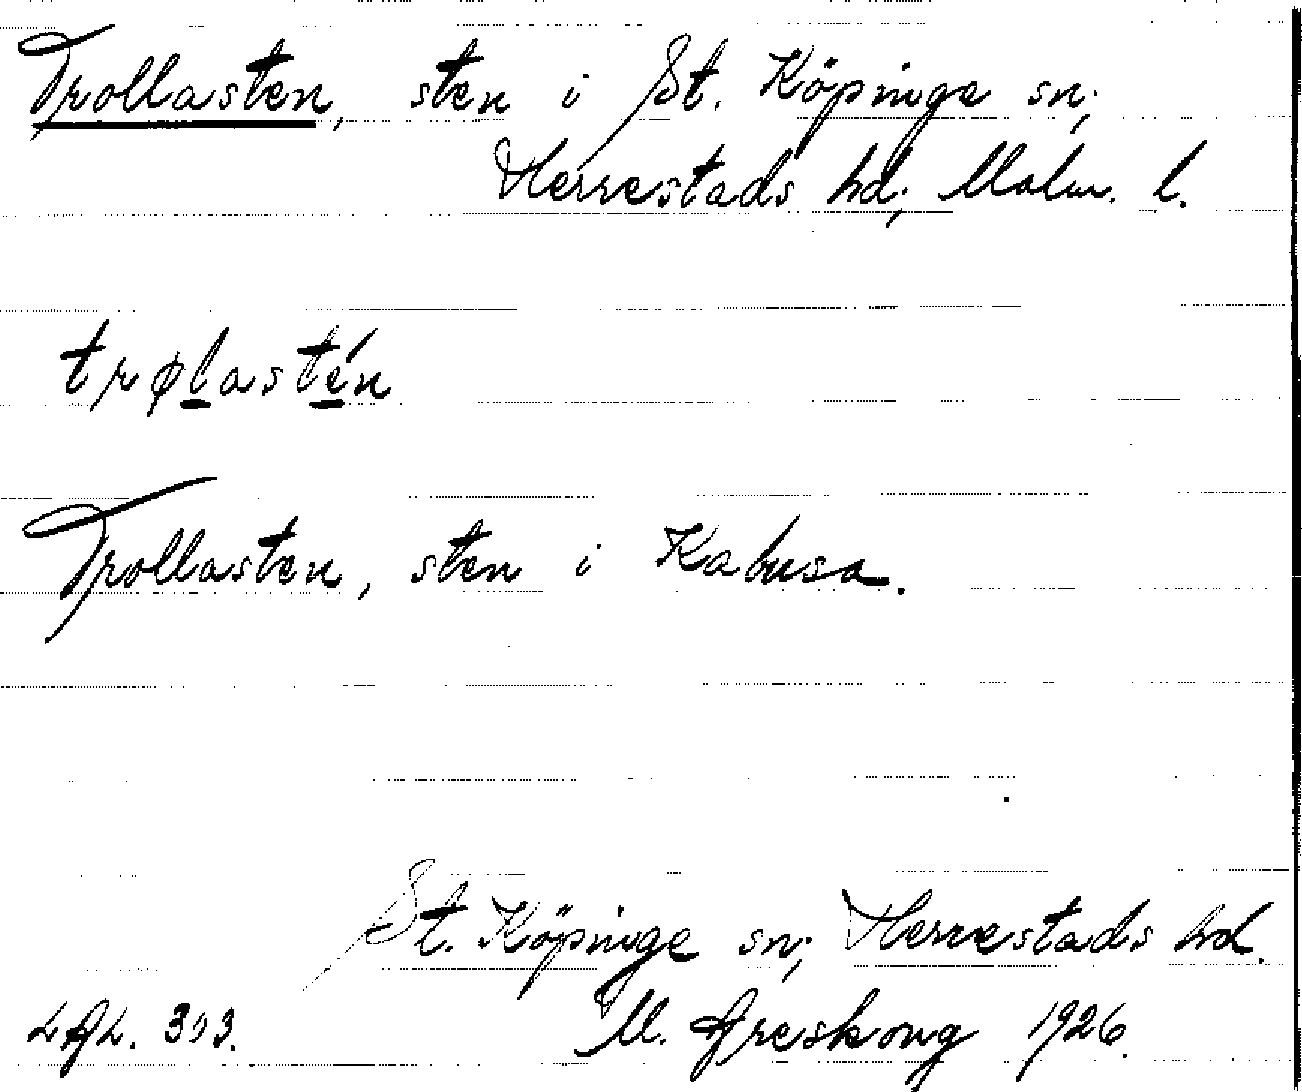 Trollasten, sten i St. Köpinge sn;
Herrestads hd; Malm. l.
trøl̲asté̲n
Trollasten, sten i Kabusa.
St. Köpinge sn; Herrestads hd.
M. Areskoug 1926.